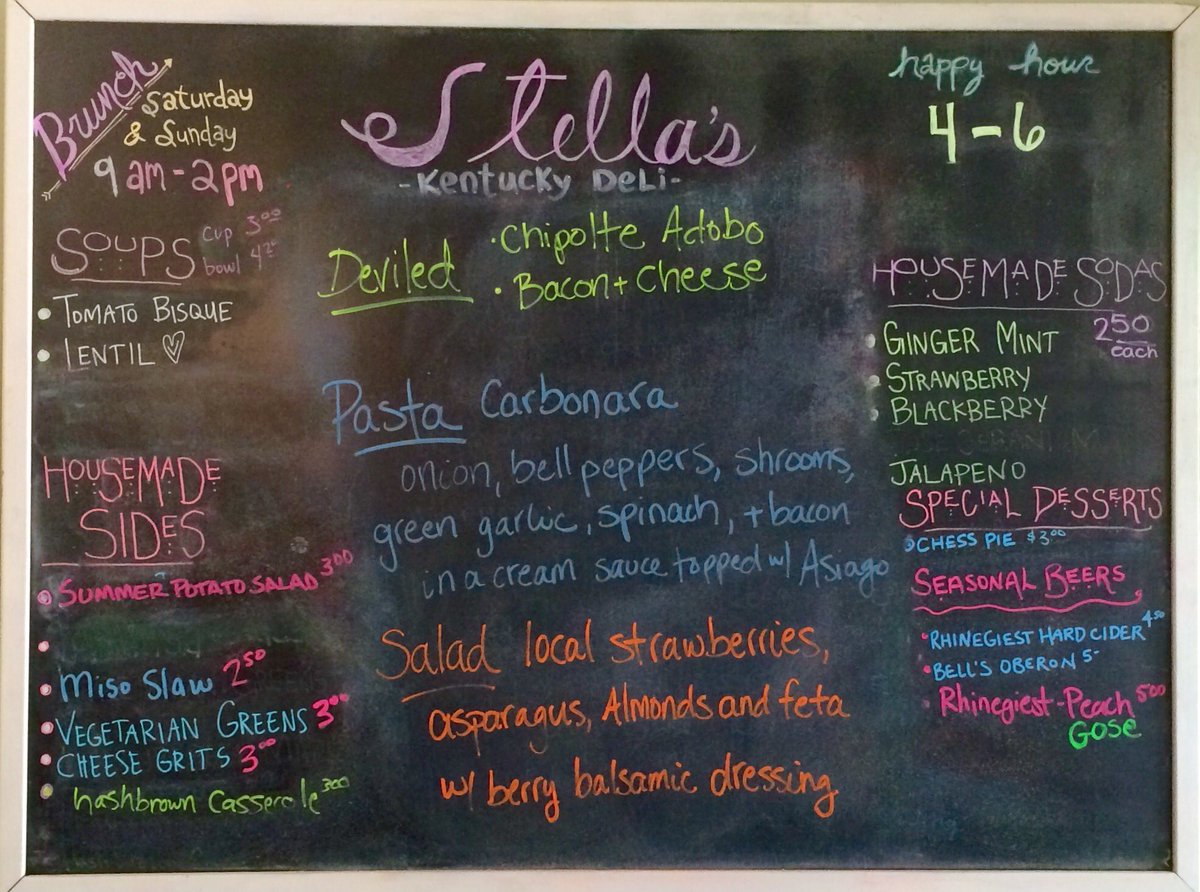 Brunch
Saturday
& Sunday
9am-2pm
Soups
cup 3.00
bowl
• Tomato Bisque
• Lentil
Housemade
Sides
• Summer Potato Salad 3.00
•
• Miso Slaw 2.50
• Vegetarian Greens 3.00
• Cheese Grits 3.00
• hashbrown Casserole 3.00
Stella's
-Kentucky Deli-
Deviled
• Chipolte Adobo
• Bacon + Cheese
Pasta Carbonara
onion, bell peppers, shrooms,
green garlic, spinach, + bacon
in a cream sauce topped w/ Asiago
Salad local strawberries,
asparagus, Almonds and feta
w/ berry balsamic dressing
happy hour
4-6
Housemade Sodas
250 each
• Ginger Mint
• Strawberry
• Blackberry
Jalapeno
Special Desserts
• Chess Pie $3.00
Seasonal Beers
• Rhinegiest Hard Cider 4.50
• Bell's Oberon 5-
• Rhinegiest-Peach 5.00
Gose